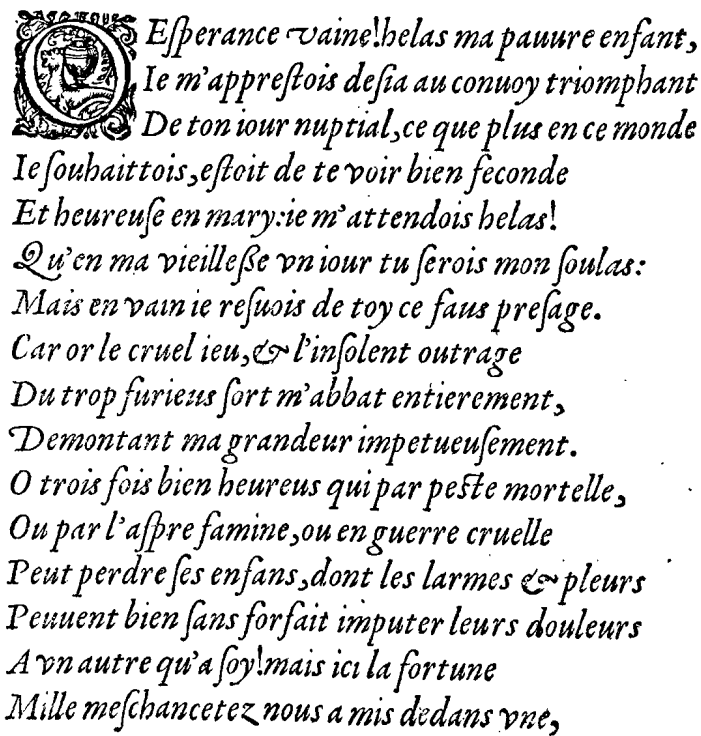 O Eſperance vaine! helas ma pauure enfant,
Ie m'appreſtois deſia au conuoy triomphant
De ton iour nuptial, ce que plus en ce monde
Ie ſouhaittois, eſtoit de te voir bien feconde
Et heureuſe en mary: ie m'attendois helas!
Qu'en ma vieilleſſe vn iour tu ſerois mon ſoulas:
Mais en vain ie reſuois de toy ce faus preſage.
Car or le cruel ieu, & l'inſolent outrage
Du trop furieus ſort m'abbat entierement,
Demontant ma grandeur impetueuſement.
O trois fois bien heureus qui par peſte mortelle,
Ou par l'aſpre famine, ou en guerre cruelle
Peut perdre ſes enfans, dont les larmes & pleurs
Peuuent bien ſans forfait imputer leurs douleurs
A vn autre qu'a ſoy! mais ici la fortune
Mille meſchancetez nous a mis dedans vne,